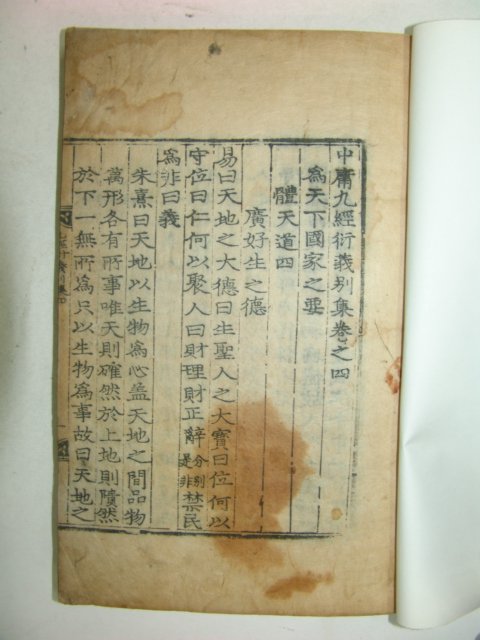 中庸九經衍義别集卷之四
爲天下國家之要
體天道四
廣好生之德
易曰天地之大德曰生聖人之大寶曰位何以
守位曰仁何以聚人曰財理財正辭分别是非禁民
爲非曰義
朱熹曰天地以生物爲心盖天地之間品物
萬形各有所事唯天則確然於上地則隤然
於下一無所爲只以生物爲事故曰天地之